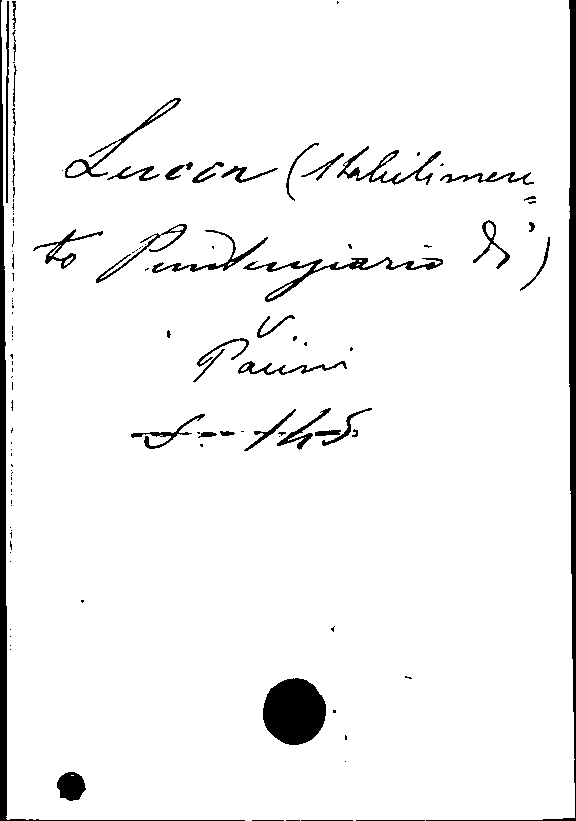 Lucca (Stabilimen=
to Penitenziario di)
v.
Pacini
S. 145